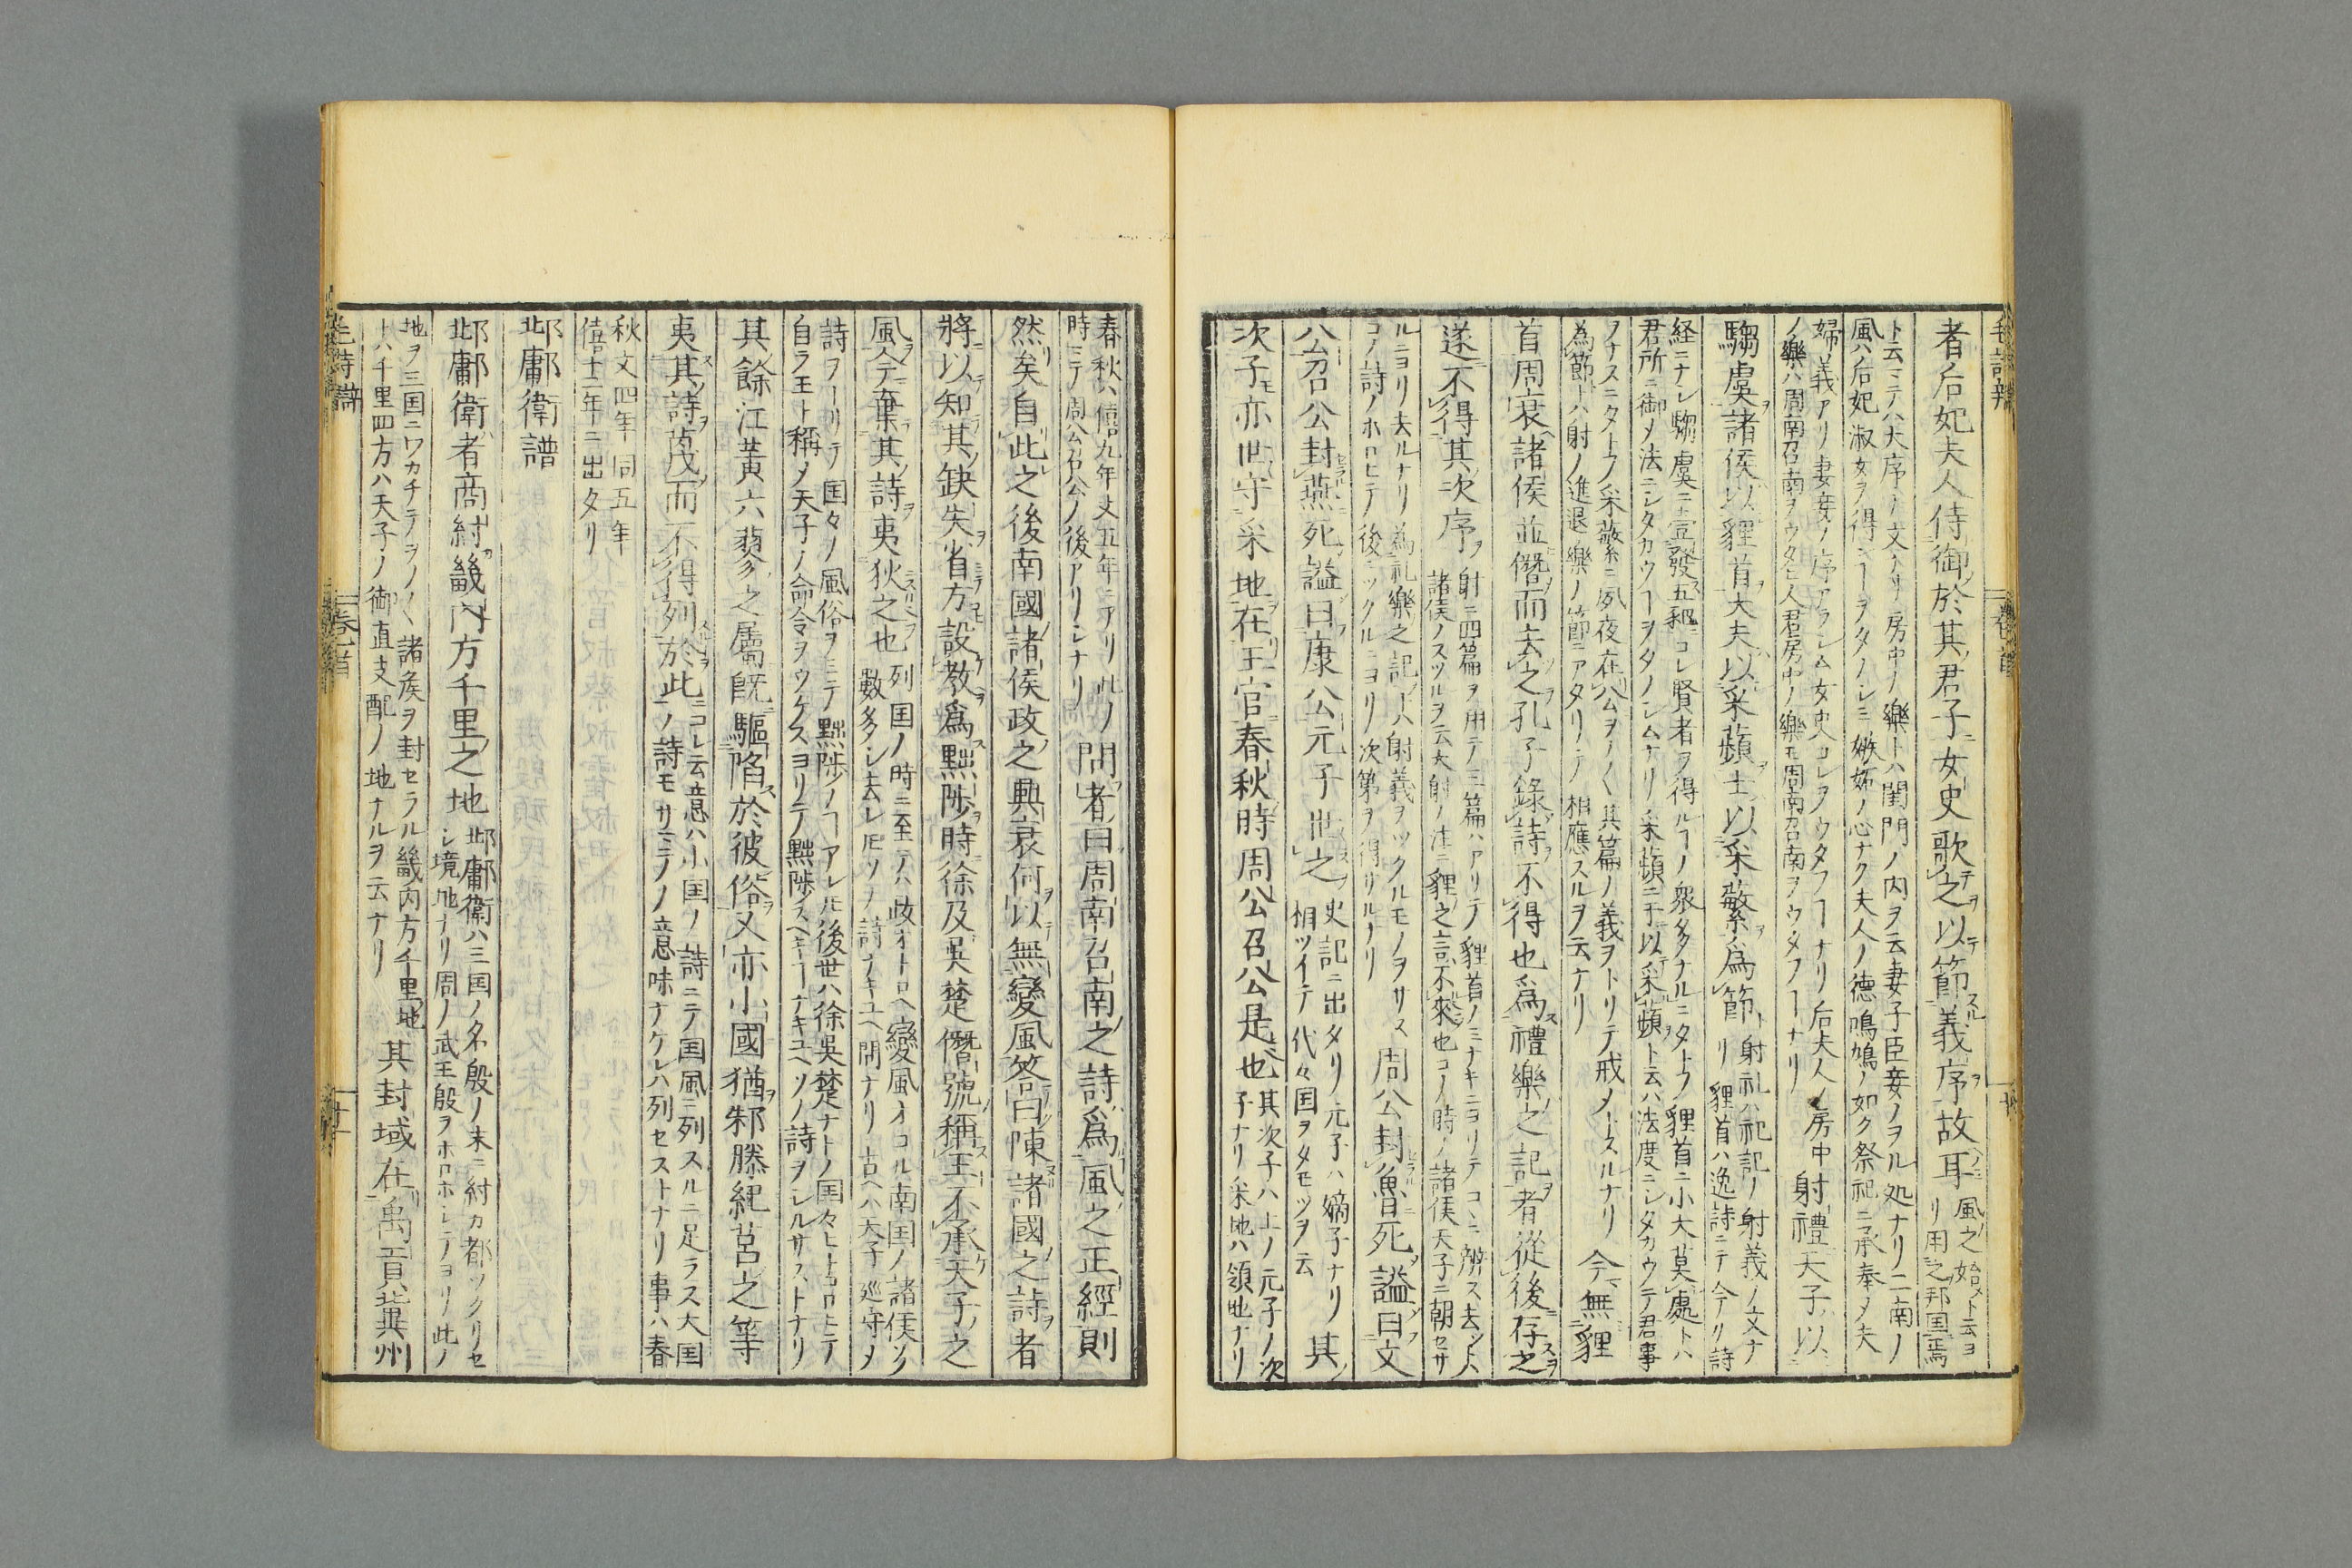 者后妃夫人侍御於其君子女史歌之以節義序故耳風之始ト云ヨ
リ用之邦国焉
ト云ミテハ大序ノ文ナリ房中ノ樂トハ閨門ノ内ヲ云妻子臣妾ノヲル処ナリ二南ノ
風ハ后妃淑女ヲ得ヿヲタノシミ嫉妬ノ心ナク夫人ノ德鳲鳩ノ如ク祭祀ニ承奉メ夫
婦義アリ妻妾ノ序アラシム女史コレヲウタフヿナリ后夫人ノ房中
ノ樂ハ周南召南ヲウタヒ人君房中ノ樂モ周南召南ヲウタフヿナリ
射禮天子以
騶虞諸侯以貍首大夫以采蘋士以采蘩為節射礼ハ礼記ノ射義ノ文ナ
リ貍首ハ逸詩ニテ今ノ詩
経ニナシ騶虞ニ壹發五豝コレ賢者ヲ得ルヿノ衆多ナルニタトフ貍首ニ小大莫處トハ
君所ニ御メ法ニシタカウヿヲタノシムナリ采蘋ニ于以采蘋ト云ハ法度ニシタカウテ君事
ヲナスニタトフ采蘩ニ夙夜在公ヲノ〱其篇ノ義ヲトリテ戒メトスルナリ
為節トハ射ノ進退樂ノ節ニアタリテ相應スルヲ云ナリ
今無貍
首周衰諸侯並僭而去之孔子錄詩不得也為禮樂之記者從後存之
遂不得其次序射ニ四篇ヲ用テ三篇ハアリテ貍首ノミナキニヨリテコヽニ辨ス去シトハ
諸侯ノスツルヲ云大射ノ注ニ貍之言不來也コノ時ノ諸侯天子ニ朝セサ
ルニヨリ去ルナリ為礼樂之記トハ射義ヲツクルモノヲサス
コノ詩ノホロヒテ後ニツクルニヨリ次第ヲ得サルナリ
周公封魯死謚曰文
公召公封燕死謚曰康公元子世之史記ニ出タリ元子ハ嫡子ナリ
相ツイテ代々国ヲタモツヲ云
其
次子亦世守采地在王官春秋時周公召公是也其次子ハ上ノ元子ノ次
子ナリ采地ハ領地ナリ
春秋ハ僖九年文五年ニアリ此ノ
時ミテ周公召公ノ後アリシナリ
問者曰周南召南之詩為風之正經則
然矣自此之後南國諸侯政之興衰何以無變風答曰陳諸國之詩者
將以知其缺失省方設教為黜陟時徐及吳楚僭號稱王不承天子之
風今棄其詩夷狄之也列国ノ時ニ至テハ政オトロヘ變風オコル南国ノ諸侯ソノ
數多シ去レ𪜈ソノ詩ナキユヘ問ナリ古ヘハ天子巡守メ
詩ヲトリテ国々ノ風俗ヲミテ黜陟ノヿアレ𪜈後世ハ徐吳楚ナトノ国々ヒトコロヒテ
自ラ王ト稱メ天子ノ命令ヲウケスヨリテ黜陟スヘキヿナキユヘソノ詩ヲシルサストナリ
其餘江黃六蓼之屬既驅陷於彼俗又亦小國猶邾滕紀莒之等
夷其詩蔑而不得列於此コレ云意ハ小国ノ詩ニテ国風ニ列スルニ足ラス大国
ノ詩モサミテノ意味ナケレハ列セストナリ事ハ春
秋文四年同五年
僖十二年ニ出タリ
邶鄘衛譜
邶鄘衛者商紂畿内方千里之地邶鄘衛ハ三国ノ名殷ノ末ニ紂カ都ツクリセ
シ境地ナリ周ノ武王殷ヲホロホシテヨリ此ノ
地ヲ三国ニワカチテヲノ〱諸侯ヲ封セラル畿内方千里地
トハ千里四方ハ天子ノ御直支配ノ地ナルヲ云ナリ
其封域在禹貢冀州
毛詩譜
卷首